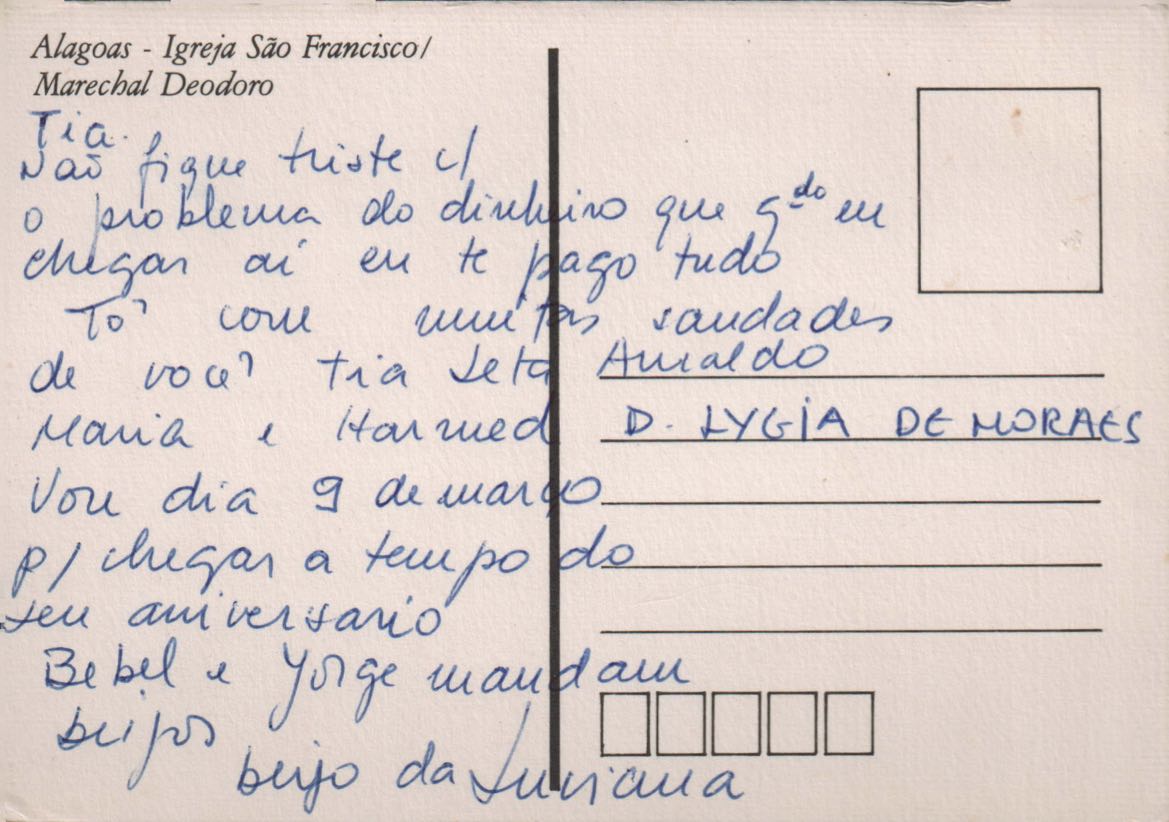 Alagoas - Igreja São Francisco/
Marechal Deodoro
Tia.
Não fique triste c/
o problema do dinheiro que qdo eu
chegar aí eu te pago tudo
Tô com muitas saudades
de você, tia Leta Amaldo
Maria e Harmed
D. LYGIA DE MORAES
Vou dia 9 de março
p/ chegar a tempo do
seu aniversario
Bebel e Yorge mandam
beijos
beijo da Luciana